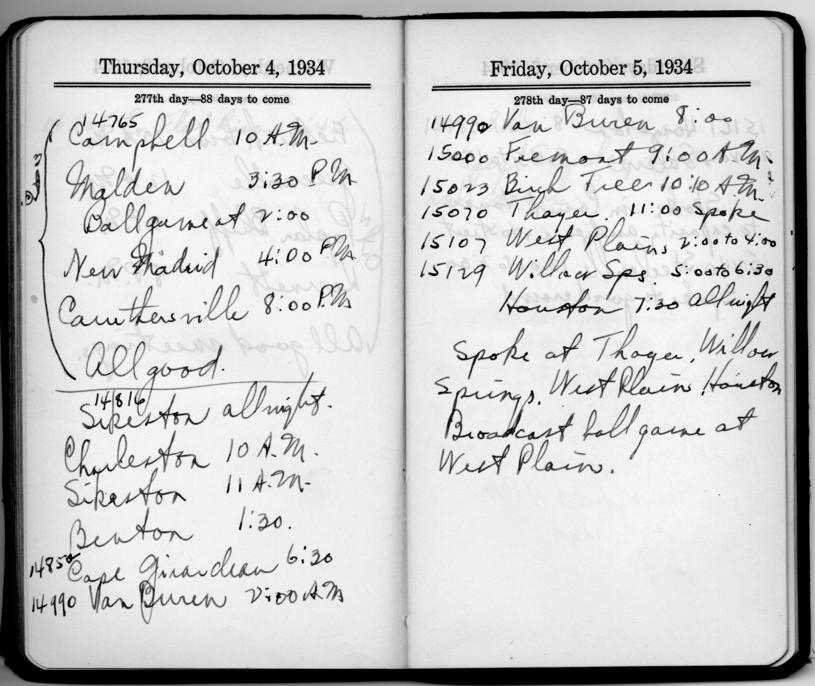 Thursday, October 4, 1934
277th day—88 days to come
14765
Campbell 10 A.M.
Malden 3:30 P.M
Ballgame at 2:00
New Madrid 4:00 P.M
Caruthersville 8:00 P.M
All good.
14816
Sikeston all night.
Charleston 10 A.M.
Sikeston 11 A.M.
Benton 1:30.
14850 Cape Girardeau 6:30
14990 Van Buren 2:00 A.M
Friday, October 5, 1934
278th day—87 days to come
14990 Van Buren 8:00
15000 Fremont 9:00 A.M.
15023 Birch Tree 10:10 A.M.
15070 Thayer. 11:00 Spoke
15107 West Plains 2:00 to 4:00
15129 Willow Spgs. 5:00 to 6:30
Houston 7:30 all night
Spoke at Thayer, Willow
Springs, West Plain Houston
Broadcast ball game at
West Plain.